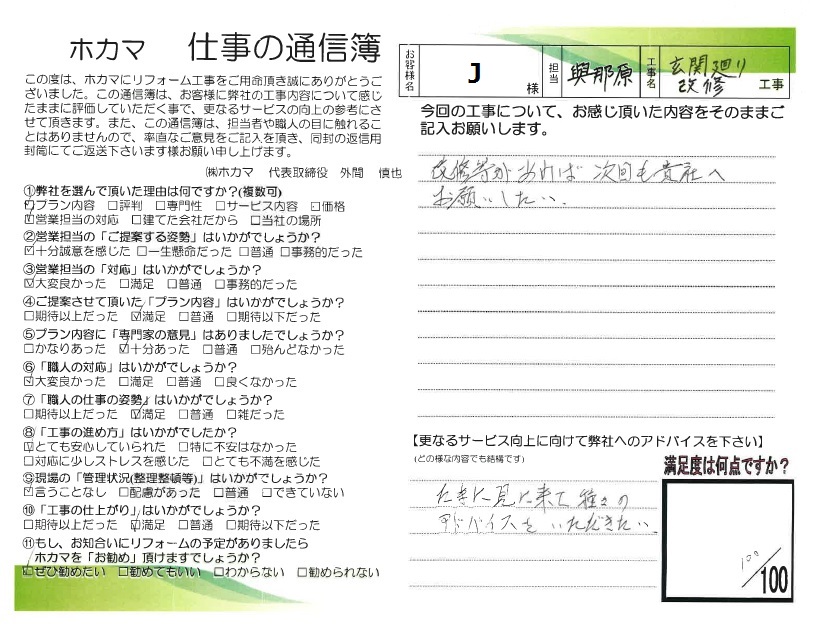 ホカマ 仕事の通信簿
この度は、ホカマにリフォーム工事をご用命頂き誠にありがとうご
ざいました。この通信簿は、お客様に弊社の工事内容について感じ
たままに評価していただく事で、更なるサービスの向上の参考にさ
せて頂きます。また、この通信簿は、担当者や職人の目に触れるこ
とはありませんので、率直なご意見をご記入を頂き、同封の返信用
封筒にてご返送下さいます様お願い申し上げます。
㈱ホカマ 代表取締役 外間 慎也
①弊社を選んで頂いた理由は何ですか?(複数可)
☑プラン内容 □評判 □専門性 □サービス内容 □価格
☑営業担当の対応 □建てた会社だから □当社の場所
②営業担当の「ご提案する姿勢」はいかがでしょうか?
☑十分誠意を感じた □一生懸命だった □普通 □事務的だった
③営業担当の「対応」はいかがでしょうか?
☑大変良かった □満足 □普通 □事務的だった
④ご提案させて頂いた「プラン内容」はいかがでしょうか?
□期待以上だった ☑満足 □普通 □期待以下だった
⑤プラン内容に「専門家の意見」はありましたでしょうか?
□かなりあった ☑十分あった □普通 □殆んどなかった
⑥「職人の対応」はいかがでしょうか?
☑大変良かった □満足 □普通 □良くなかった
⑦「職人の仕事の姿勢」はいかがでしょうか?
□期待以上だった ☑満足 □普通 □雑だった
⑧「工事の進め方」はいかがでしたか?
☑とても安心していられた □特に不安はなかった
□対応に少しストレスを感じた □とても不満を感じた
⑨現場の「管理状況(整理整頓等)」はいかがでしょうか?
☑言うことなし □配慮があった □普通 □できていない
⑩「工事の仕上がり」はいかがでしょうか?
□期待以上だった ☑満足 □普通 □期待以下だった
⑪もし、お知合いにリフォームの予定がありましたら
ホカマを「お勧め」頂けますでしょうか?
☑ぜひ勧めたい □勧めてもいい □わからない □勧められない
お客様名 J 様 担当 與那原 工事名 玄関廻り改修 工事
今回の工事について、お感じ頂いた内容をそのままご
記入お願いします。
改修等があれば 次回も貴社へ
お願いしたい.
【更なるサービス向上に向けて弊社へのアドバイスを下さい】
(どの様な内容でも結構です)
ときに見に来て 種々の
アドバイスを いただきたい
満足度は何点ですか?
100/100